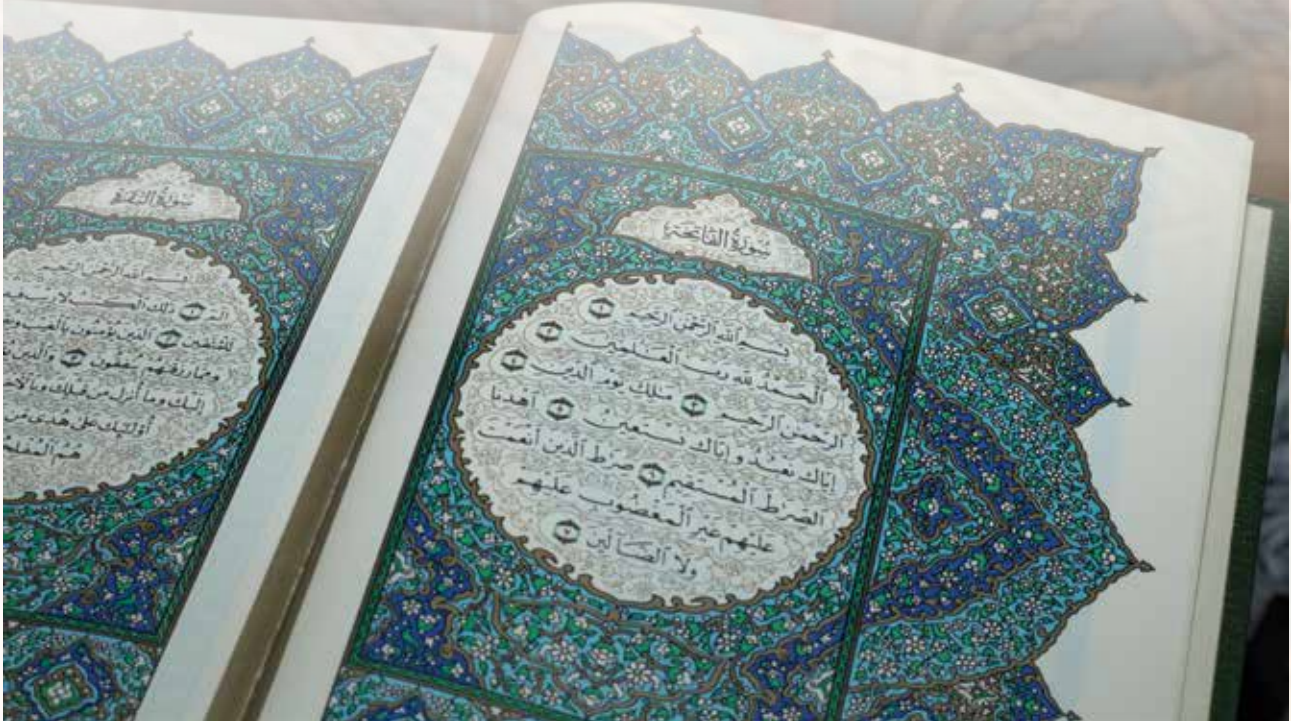 سورة الفاتحة
بسم الله الرحمن الرحيم
الحمد لله رب العلمين
الرحمن الرحيم ملك يوم الدين
إياك نعبد وإياك نستعين اهدنا
الصرط المستقيم صرط الذين أنعمت
عليهم غير المغضوب عليهم
ولا الضالين
سورة البقرة
بسم الله الرحمن الرحيم
الم ذلك الكتب لا ريب فيه
للمتقين الذين يؤمنون بالغيب
ومما رزقنهم ينفقون والذين
إليك وما أنزل من قبلك وبالأخرة
أولئك على هدى من
هم المفلحون